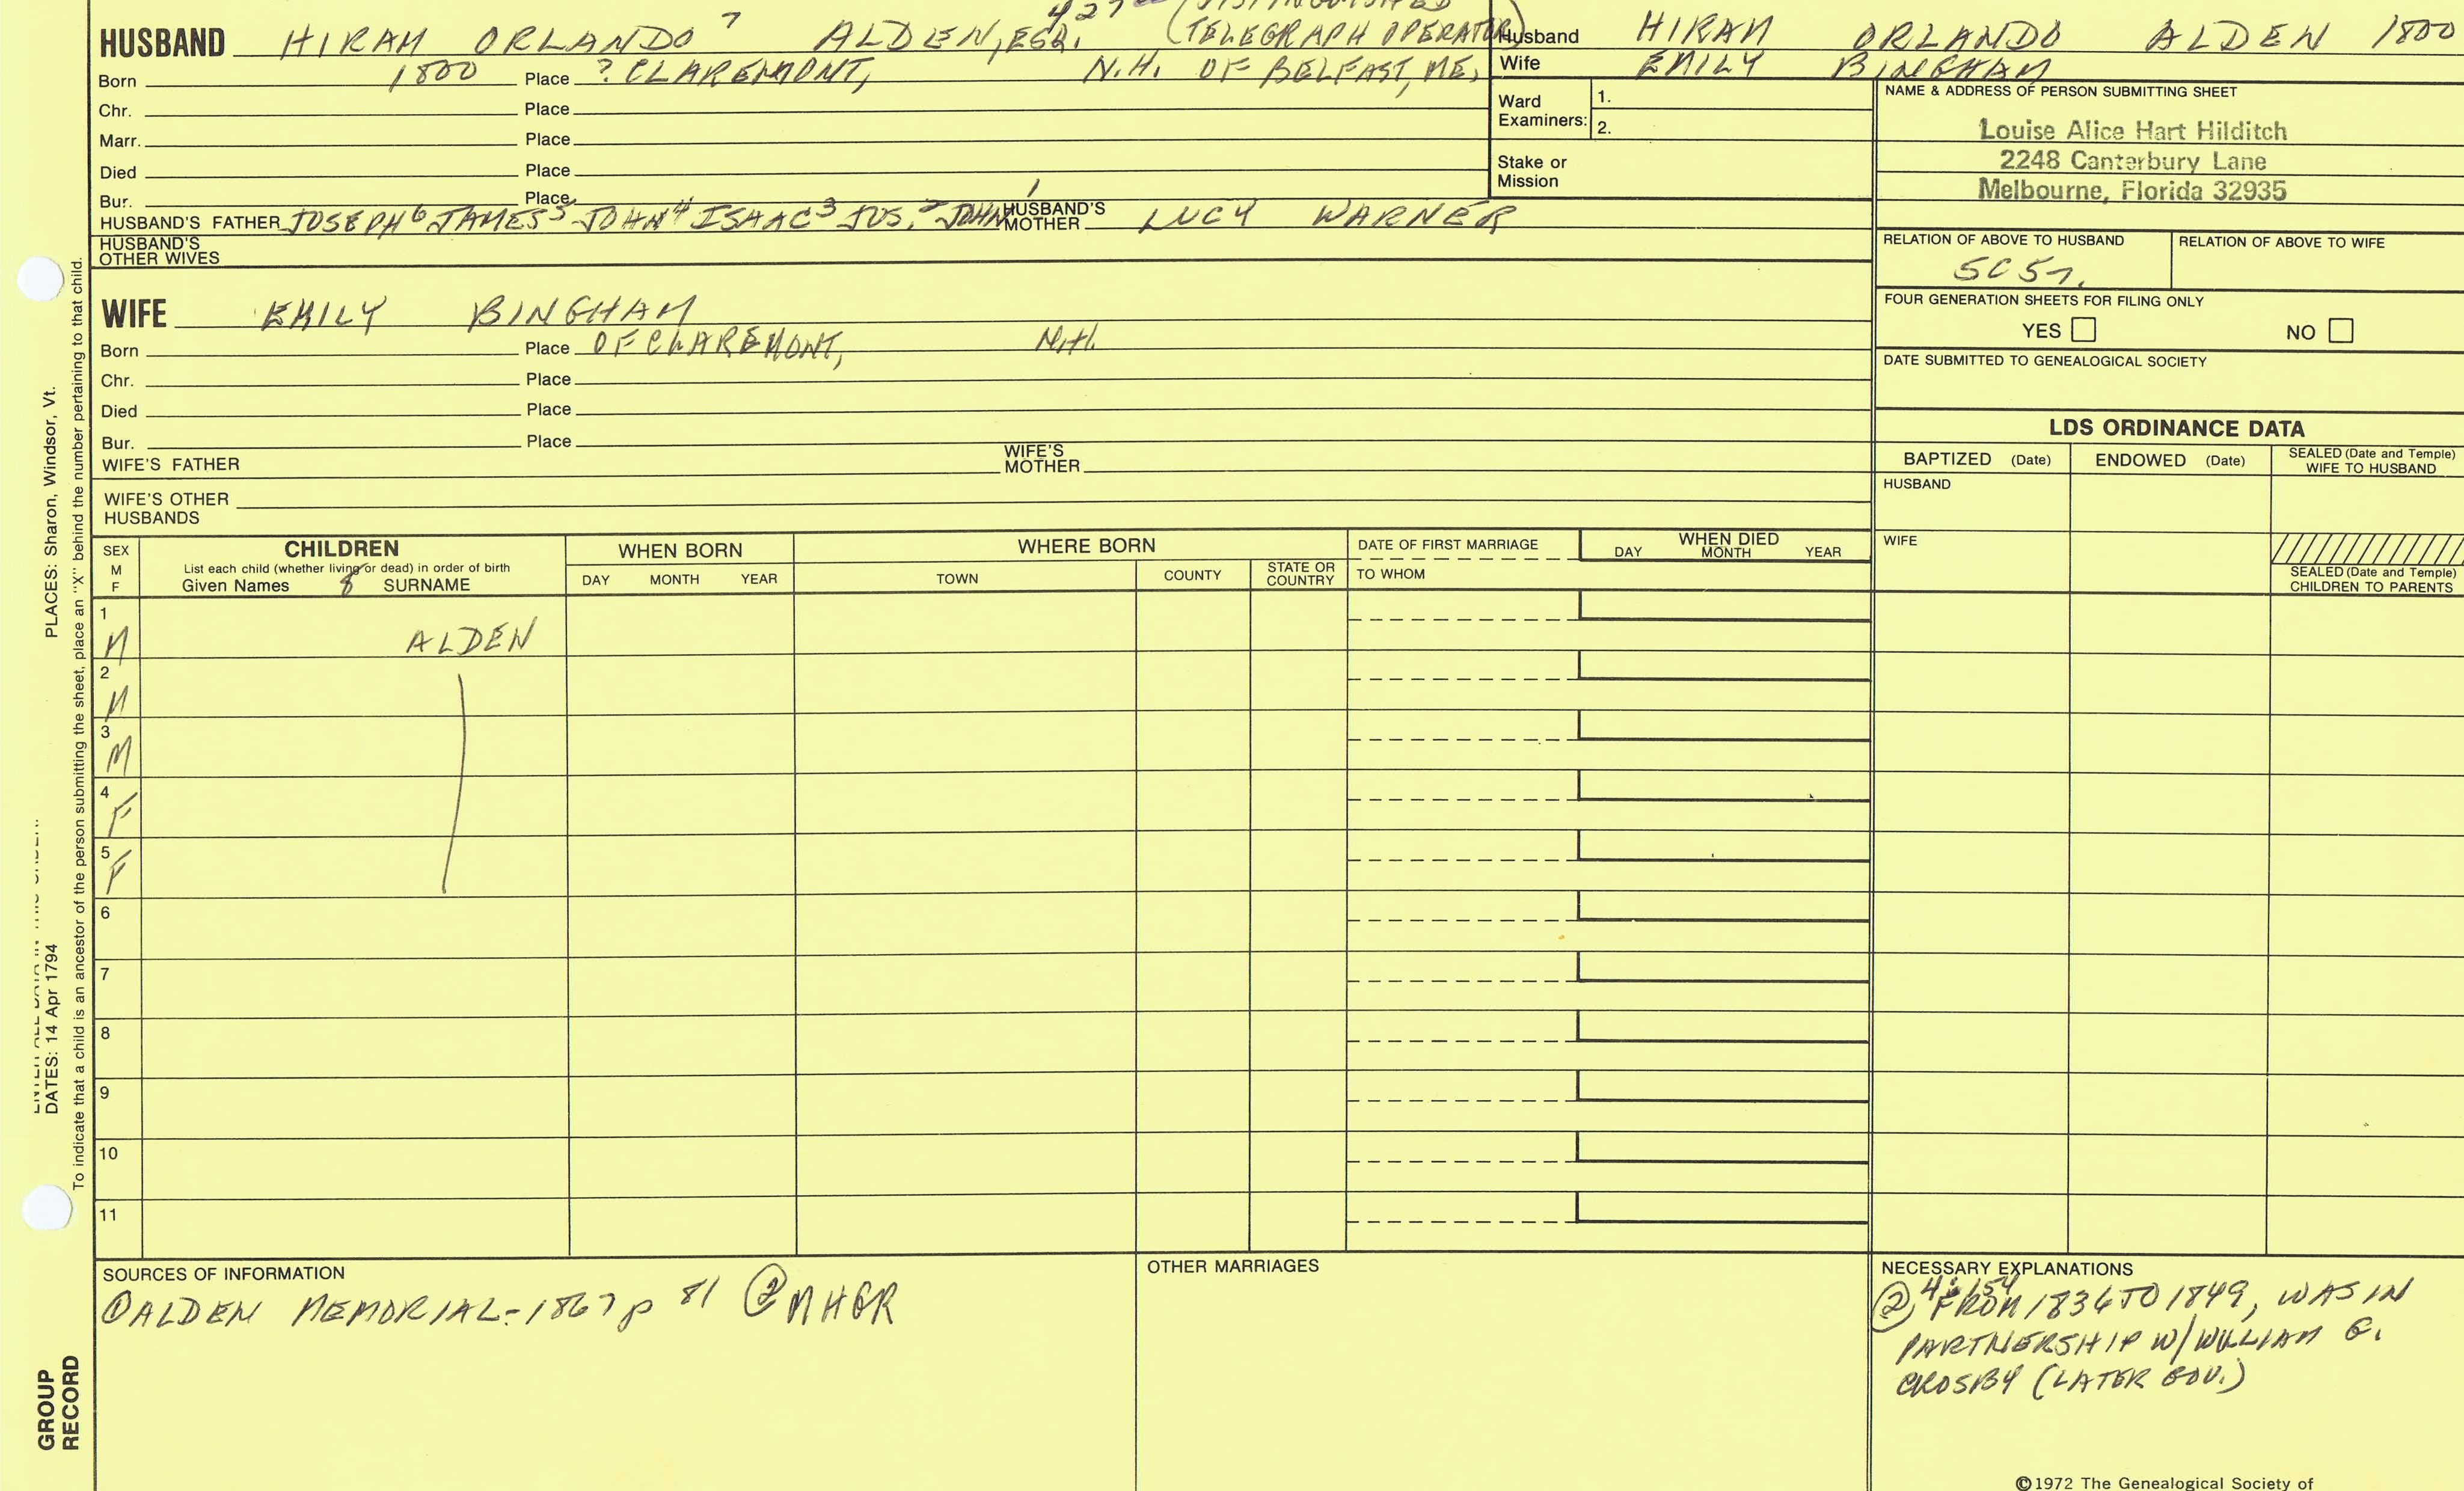 427
(DISTINGUISHED
HUSBAND HIRAM ORLANDO 7 ALDEN, ESQ. (TELEGRAPH OPERATOR)
Born 1800 Place ? CLAREMONT, N.H. OF BELFAST, ME,
Chr. Place
Marr. Place
Died Place
Bur. Place
HUSBAND'S FATHER JOSEPH 6 JAMES 5 JOHN 4 ISAAC 3 JOS. 2 JOHN 1 HUSBAND'S MOTHER LUCY WARNER
HUSBAND'S OTHER WIVES
Husband HIRAM ORLANDO ALDEN 1800
Wife EMILY BINGHAM
Ward Examiners: 1.
2.
Stake or Mission
NAME & ADDRESS OF PERSON SUBMITTING SHEET
Louise Alice Hart Hilditch
2248 Canterbury Lane
Melbourne, Florida 32935
RELATION OF ABOVE TO HUSBAND RELATION OF ABOVE TO WIFE
5C5r.
FOUR GENERATION SHEETS FOR FILING ONLY
YES NO
DATE SUBMITTED TO GENEALOGICAL SOCIETY
WIFE EMILY BINGHAM
Born Place OF CLAREMONT, N.H.
Chr. Place
Died Place
Bur. Place
WIFE'S FATHER WIFE'S MOTHER
WIFE'S OTHER HUSBANDS
LDS ORDINANCE DATA
BAPTIZED (Date) ENDOWED (Date) SEALED (Date and Temple) WIFE TO HUSBAND
HUSBAND
WIFE
SEALED (Date and Temple) CHILDREN TO PARENTS
SEX M F
CHILDREN
List each child (whether living or dead) in order of birth
Given Names & SURNAME
WHEN BORN
DAY MONTH YEAR
WHERE BORN
TOWN COUNTY STATE OR COUNTRY
DATE OF FIRST MARRIAGE
TO WHOM
WHEN DIED
DAY MONTH YEAR
1 M ALDEN
2 M
3 M
4 F
5 F
6
7
8
9
10
11
SOURCES OF INFORMATION
① ALDEN MEMORIAL-1867 p 81 ② NHGR
OTHER MARRIAGES
NECESSARY EXPLANATIONS
② 4:154 FROM 1836 TO 1849, WAS IN
PARTNERSHIP W/WILLIAM G.
CROSBY (LATER GOV.)
©1972 The Genealogical Society of
PLACES: Sharon, Windsor, Vt.
DATES: 14 Apr 1794
To indicate that a child is an ancestor of the person submitting the sheet, place an "X" behind the number pertaining to that child.
GROUP
RECORD